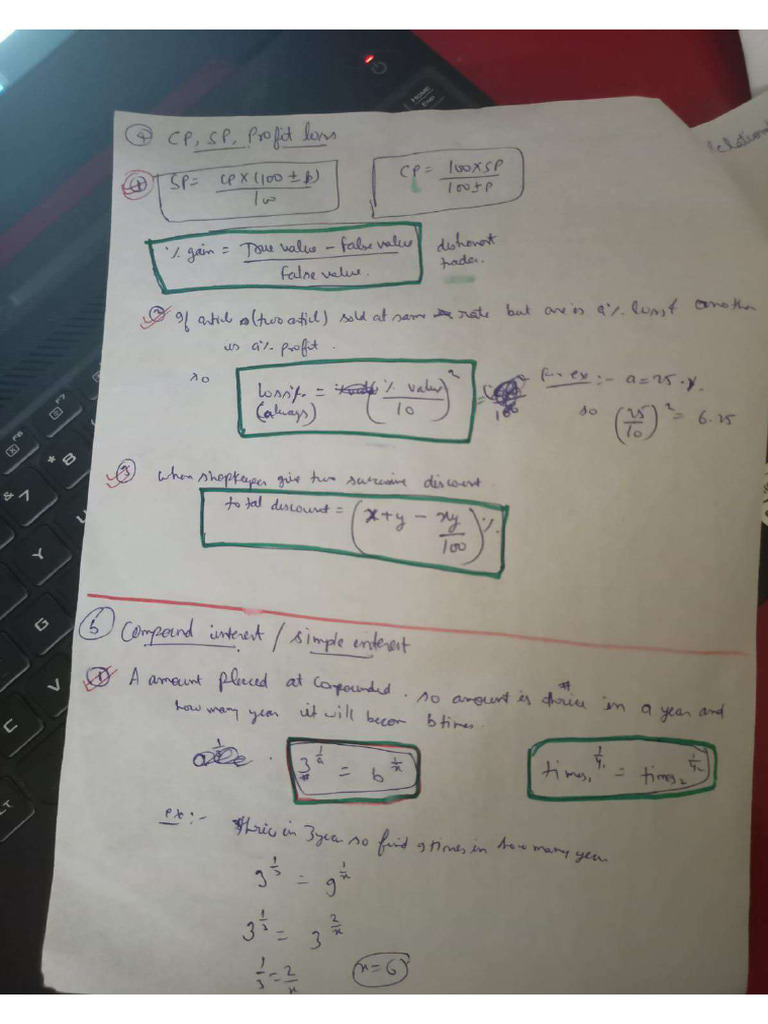 ④ CP, SP, Profit loss
① SP = CP × (100 ± P) / 100
CP = 100 × SP / 100 ± P
% gain = True value - False value / False value.
dishonest trader.
② If articl s (two articl) sold at same rate but one is a% loss & another
is a% profit.
so
loss% = (% value / 10)²
(always)
=
100
For ex :- a = 25 %.
so (25/10)² = 6.25
③ when shopkeeper give two sucessive discount.
total discount = (x + y - xy/100) %.
5 Compound interest / simple enterest
① A amount placed at compounded. so amount is thrice in a year and
how many year it will becom b times.
3^(1/a) = b^(1/x)
times₁^(1/y₁) = times₂^(1/y₂)
ex :- thrice in 3 year so find 9 times in how many year
3^(1/3) = 9^(1/x)
3^(1/3) = 3^(2/x)
1/3 = 2/x
x = 6
HOME
Fn
F6
F5
* 8
& 7
Y
G
V
C
LT